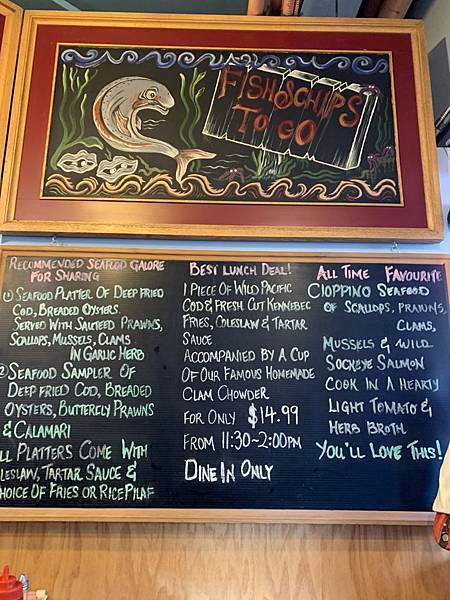 FISH & CHIPS
TO GO
RECOMMENDED SEAFOOD GALORE
FOR SHARING
① SEAFOOD PLATTER OF DEEP FRIED
COD, BREADED OYSTERS.
SERVED WITH SAUTEED PRAWNS,
SCALLOPS, MUSSELS, CLAMS
IN GARLIC HERB
② SEAFOOD SAMPLER OF
DEEP FRIED COD, BREADED
OYSTERS, BUTTERFLY PRAWNS
& CALAMARI
LL PLATTERS COME WITH
LESLAW, TARTAR SAUCE &
HOICE OF FRIES OR RICE PILAF
BEST LUNCH DEAL!
1 PIECE OF WILD PACIFIC
COD & FRESH CUT KENNEBEC
FRIES, COLESLAW & TARTAR
SAUCE
ACCOMPANIED BY A CUP
OF OUR FAMOUS HOMEMADE
CLAM CHOWDER
FOR ONLY $14.99
FROM 11:30~2:00PM
DINE IN ONLY
ALL TIME FAVOURITE
CIOPPINO SEAFOOD
OF SCALLOPS, PRAWNS,
CLAMS,
MUSSELS & WILD
SOCKEYE SALMON
COOK IN A HEARTY
LIGHT TOMATO &
HERB BROTH.
YOU'LL LOVE THIS!